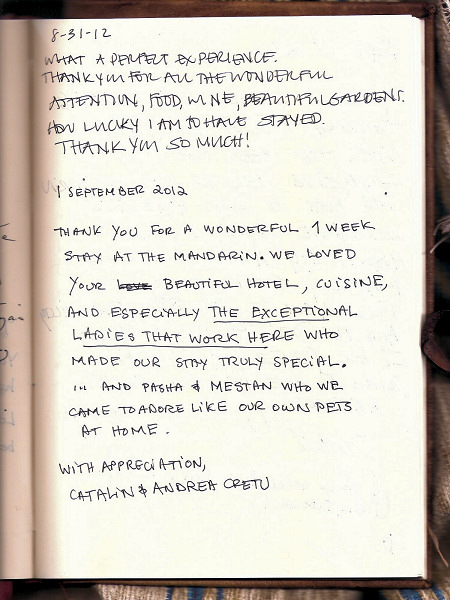 8-31-12
WHAT A PERFECT EXPERIENCE.
THANK YOU FOR ALL THE WONDERFUL
ATTENTION, FOOD, WINE, BEAUTIFUL GARDENS.
HOW LUCKY I AM TO HAVE STAYED.
THANK YOU SO MUCH!
1 SEPTEMBER 2012
THANK YOU FOR A WONDERFUL 1 WEEK
STAY AT THE MANDARIN. WE LOVED
YOUR LOVE BEAUTIFUL HOTEL, CUISINE,
AND ESPECIALLY THE EXCEPTIONAL
LADIES THAT WORK HERE WHO
MADE OUR STAY TRULY SPECIAL.
... AND PASHA & MESTAN WHO WE
CAME TO ADORE LIKE OUR OWN PETS
AT HOME.
WITH APPRECIATION,
CATALIN & ANDREA CRETU